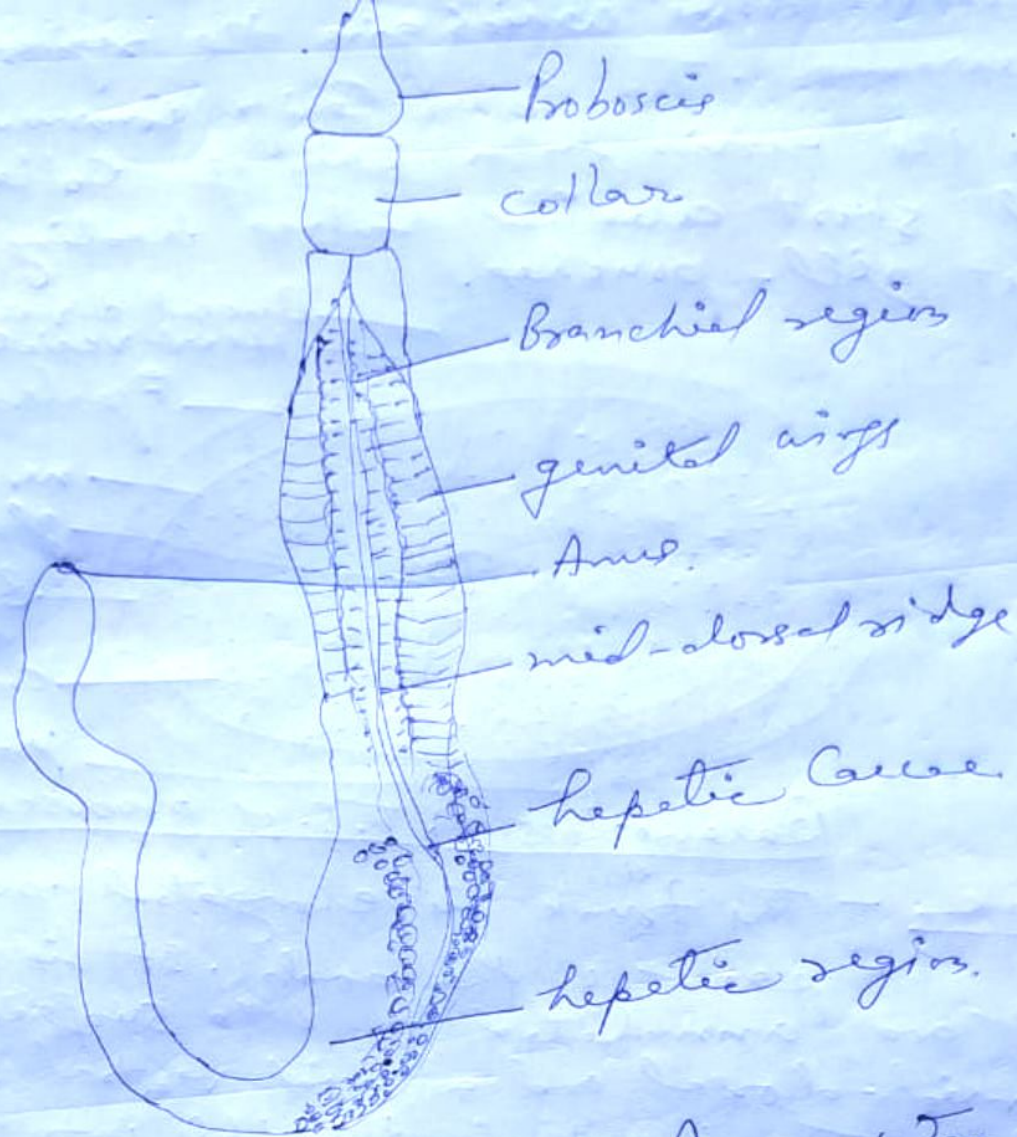 Proboscis
collar
Branchial region
genital wings
Anus.
mid-dorsal ridge
hepatic Caecae
hepatic region.